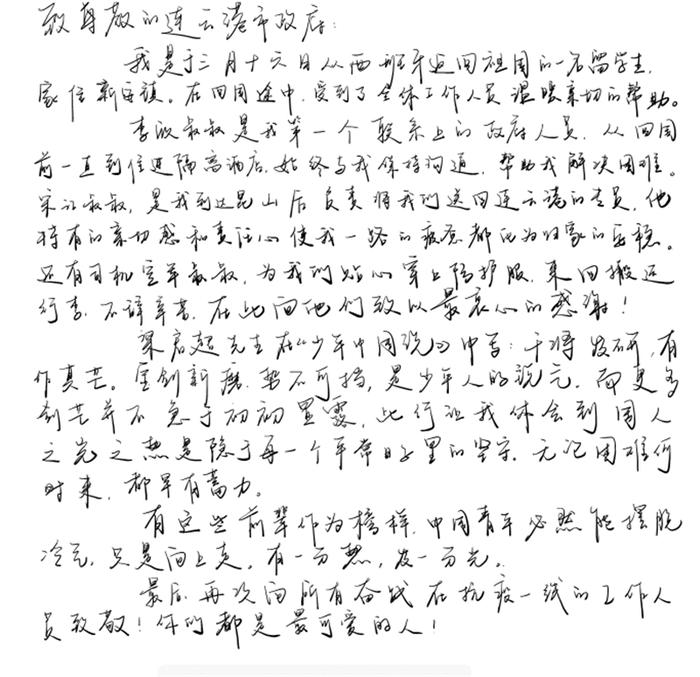 致尊敬的连云港市政府:
我是于三月十六日从西班牙返回祖国的一名留学生,
家住新安镇。在回国途中,受到了全体工作人员温暖亲切的帮助。
李政叔叔是我第一个联系上的政府人员,从回国
前一直到住进隔离酒店,始终与我保持沟通,帮助我解决困难。
宋 叔叔,是我到达昆山后负责将我们送回连云港的专员,他
特有的亲切感和责任心使我一路的疲惫都化为归家的安稳。
还有司机 军叔叔,为我们贴心穿上防护服,来回搬运
行李,不辞辛苦,在此向他们致以最衷心的感谢!
梁启超先生在《少年中国说》中写:干将发硎,有
作其芒。宝剑新磨,势不可挡,是少年人的 元,而更多
剑芒并不急于初初显露,此行让我体会到国人
之光之热是隐于每一个平常日子里的坚守,无论困难何
时来,都早有蓄力。
有这些前辈作为榜样,中国青年必然能摆脱
冷气,只是向上走,有一分热,发一分光。
最后,再次向所有奋战在抗疫一线的工作人
员致敬!你们都是最可爱的人!